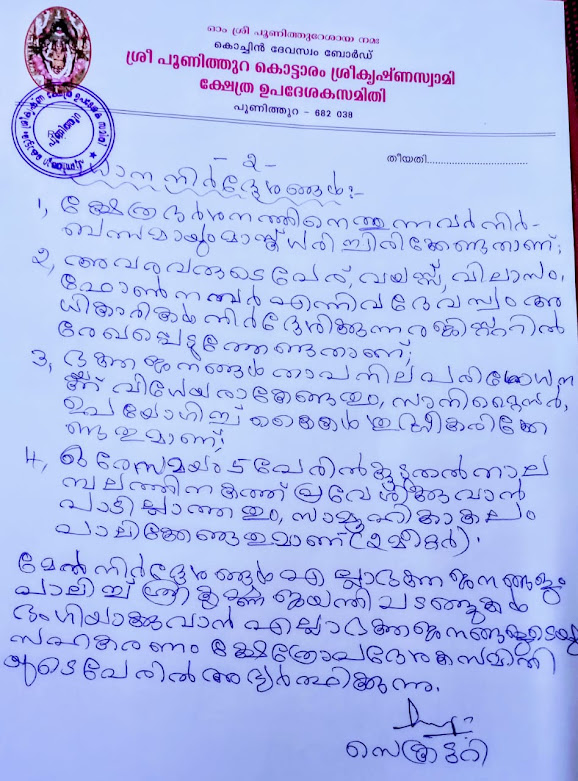 ഓം ശ്രീ പൂണിത്തുറേശായ നമഃ
കൊച്ചിൻ ദേവസ്വം ബോർഡ്
ശ്രീ പൂണിത്തുറ കൊട്ടാരം ശ്രീകൃഷ്ണസ്വാമി
ക്ഷേത്ര ഉപദേശകസമിതി
പൂണിത്തുറ - 682 038
പൂണിത്തുറ
തീയതി..............................
- ൨ -
നിർദ്ദേശങ്ങൾ:-
1, ക്ഷേത്രദർശനത്തിനെത്തുന്നവർ നിർ-
ബന്ധമായും മാസ്ക് ധരിച്ചിരിക്കേണ്ടതാണ്;
2, അവരവരുടെ പേര്, വയസ്സ്, വിലാസം,
ഫോൺ നമ്പർ എന്നിവ ദേവസ്വം അ
ധികാരികൾ നിർദ്ദേശിക്കുന്ന രജിസ്റ്ററിൽ
രേഖപ്പെടുത്തേണ്ടതാണ്;
3, ഭക്തജനങ്ങൾ താപനില പരിശോധന
യ്ക്ക് വിധേയരാകേണ്ടതും, സാനിറ്റൈസർ,
ഉപയോഗിച്ച് കൈകൾ ശുദ്ധീകരിക്കേ
ണ്ടതുമാണ്;
4, ഒരേസമയം 5 പേരിൽ കൂടുതൽ നാല
മ്പലത്തിനകത്ത് പ്രവേശിക്കുവാൻ
പാടില്ലാത്തതും, സാമൂഹികാകലം
പാലിക്കേണ്ടതുമാണ് (2 മീറ്റർ).
മേൽ നിർദ്ദേശങ്ങൾ എല്ലാ ഭക്തജനങ്ങളും
പാലിച്ച് ശ്രീകൃഷ്ണ ജയന്തി ചടങ്ങുകൾ
ഭംഗിയാക്കുവാൻ എല്ലാ ഭക്തജനങ്ങളുടെയും
സഹകരണം ക്ഷേത്രോപദേശകസമിതി
യുടെ പേരിൽ അഭ്യർത്ഥിക്കുന്നു.
സെക്രട്ടറി